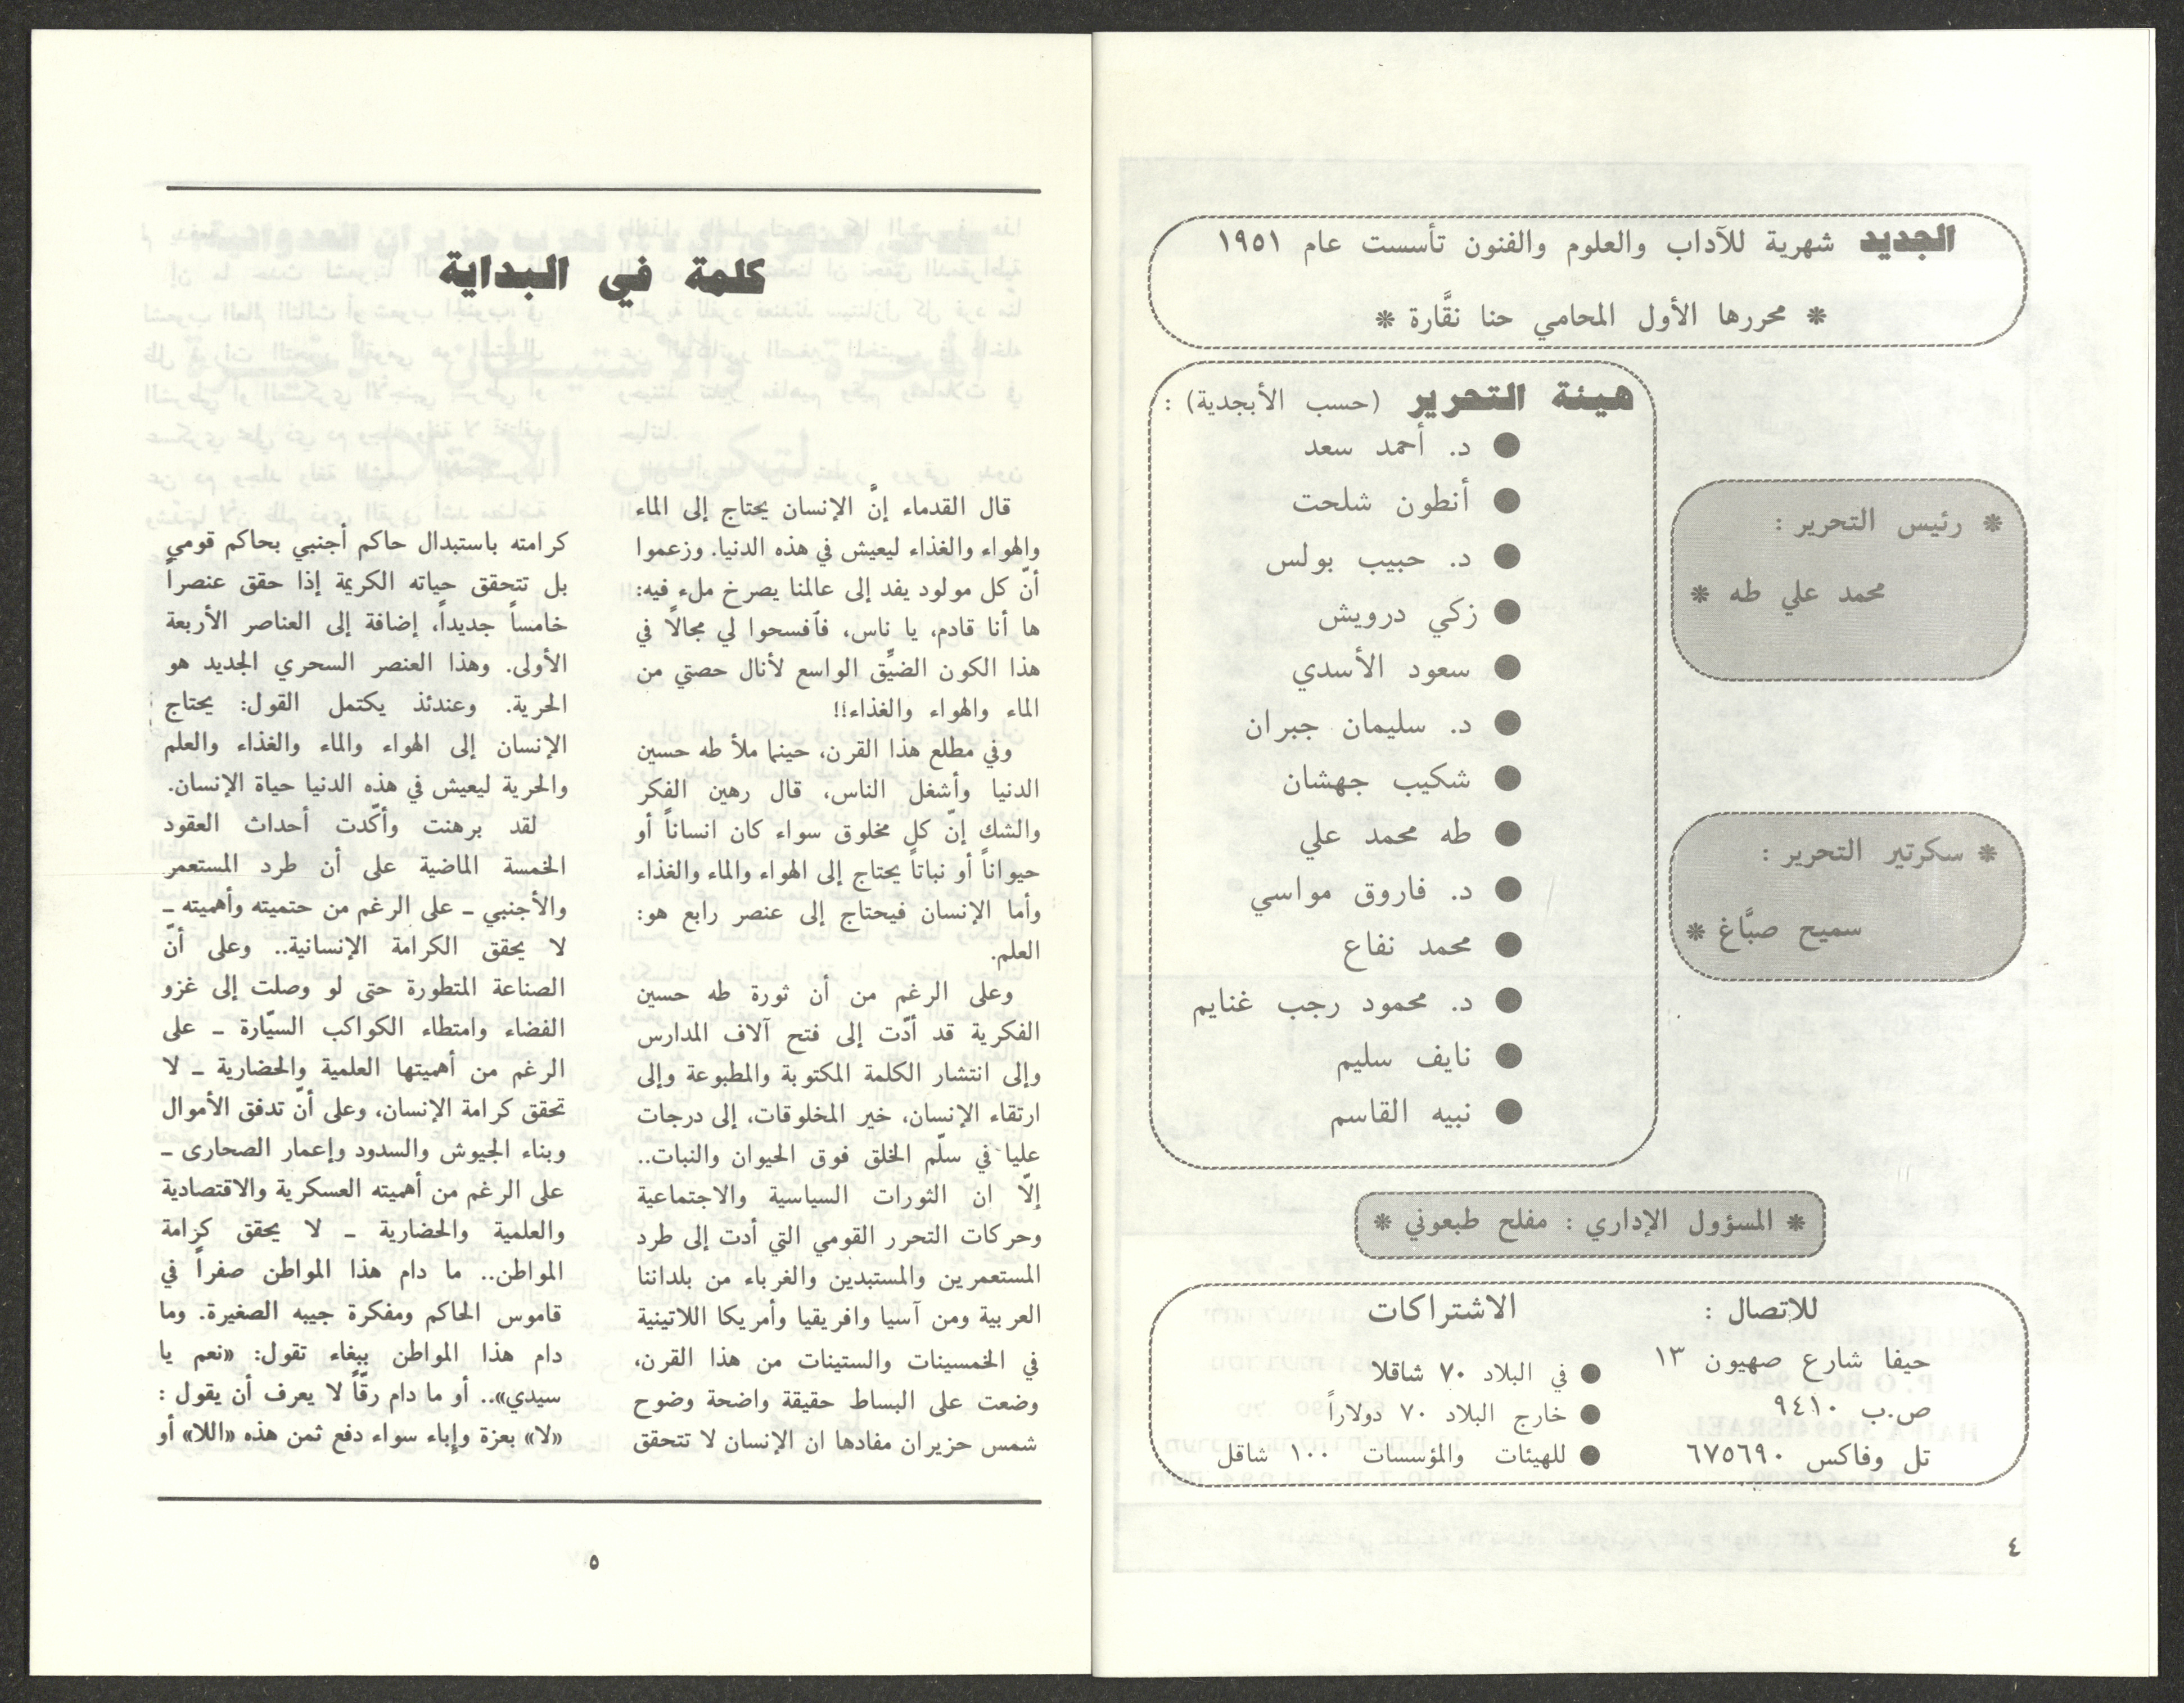 الجديد شهرية للآداب والعلوم والفنون تأسست عام ١٩٥١
* محررها الأول المحامي حنا نقَّارة *
* رئيس التحرير :
محمد علي طه *
* سكرتير التحرير :
سميح صبَّاغ *
هيئة التحرير (حسب الأبجدية) :
● د. أحمد سعد
● أنطون شلحت
● د. حبيب بولس
● زكي درويش
● سعود الأسدي
● د. سليمان جبران
● شكيب جهشان
● طه محمد علي
● د. فاروق مواسي
● محمد نفاع
● د. محمود رجب غنايم
● نايف سليم
● نبيه القاسم
* المسؤول الإداري : مفلح طبعوني *
للاتصال :
حيفا شارع صهيون ١٣
ص.ب ٩٤١٠
تل وفاكس ٦٧٥٦٩٠
الاشتراكات
● في البلاد ٧٠ شاقلا
● خارج البلاد ٧٠ دولاراً
● للهيئات والمؤسسات ١٠٠ شاقل
٤
كلمة في البداية
قال القدماء إنَّ الإنسان يحتاج إلى الماء
والهواء والغذاء ليعيش في هذه الدنيا. وزعموا
أنّ كل مولود يفد إلى عالمنا يصرخ ملء فيه:
ها أنا قادم، يا ناس، فأفسحوا لي مجالًا في
هذا الكون الضيِّق الواسع لأنال حصتي من
الماء والهواء والغذاء!!
وفي مطلع هذا القرن، حينما ملأ طه حسين
الدنيا وأشغل الناس، قال رهين الفكر
والشك إنّ كل مخلوق سواء كان انساناً أو
حيواناً أو نباتاً يحتاج إلى الهواء والماء والغذاء
وأما الإنسان فيحتاج إلى عنصر رابع هو:
العلم.
وعلى الرغم من أن ثورة طه حسين
الفكرية قد أدّت إلى فتح آلاف المدارس
وإلى انتشار الكلمة المكتوبة والمطبوعة وإلى
ارتقاء الإنسان، خير المخلوقات، إلى درجات
عليا في سلّم الخلق فوق الحيوان والنبات..
إلّا ان الثورات السياسية والاجتماعية
وحركات التحرر القومي التي أدت إلى طرد
المستعمرين والمستبدين والغرباء من بلداننا
العربية ومن آسيا وافريقيا وأمريكا اللاتينية
في الخمسينات والستينات من هذا القرن،
وضعت على البساط حقيقة واضحة وضوح
شمس حزيران مفادها ان الإنسان لا تتحقق
كرامته باستبدال حاكم أجنبي بحاكم قومي
بل تتحقق حياته الكريمة إذا حقق عنصراً
خامساً جديداً، إضافة إلى العناصر الأربعة
الأولى. وهذا العنصر السحري الجديد هو
الحرية. وعندئذ يكتمل القول: يحتاج
الإنسان إلى الهواء والماء والغذاء والعلم
والحرية ليعيش في هذه الدنيا حياة الإنسان.
لقد برهنت وأكّدت أحداث العقود
الخمسة الماضية على أن طرد المستعمر
والأجنبي ـ على الرغم من حتميته وأهميته ـ
لا يحقق الكرامة الإنسانية.. وعلى أنّ
الصناعة المتطورة حتى لو وصلت إلى غزو
الفضاء وامتطاء الكواكب السيّارة ـ على
الرغم من أهميتها العلمية والحضارية ـ لا
تحقق كرامة الإنسان، وعلى أنّ تدفق الأموال
وبناء الجيوش والسدود وإعمار الصحارى ـ
على الرغم من أهميته العسكرية والاقتصادية
والعلمية والحضارية ـ لا يحقق كرامة
المواطن.. ما دام هذا المواطن صفراً في
قاموس الحاكم ومفكرة جيبه الصغيرة. وما
دام هذا المواطن ببغاء تقول: «نعم يا
سيدي».. أو ما دام رقّاً لا يعرف أن يقول :
«لا» بعزة وإباء سواء دفع ثمن هذه «اللا» أو
٥